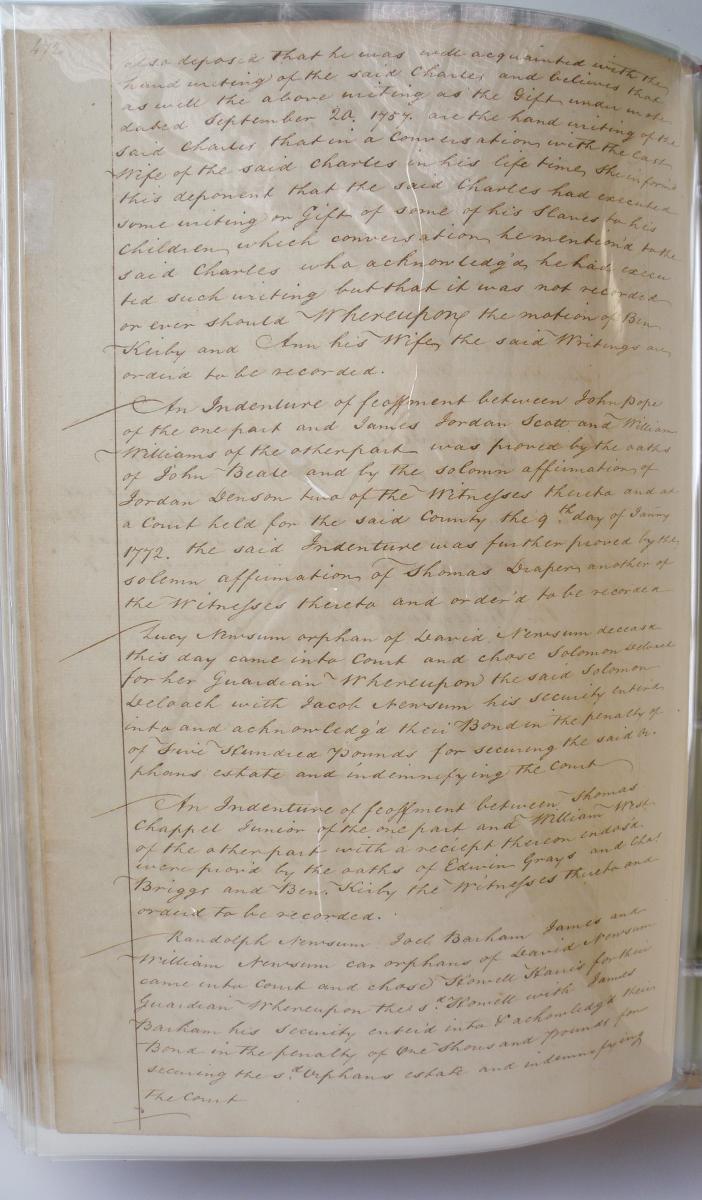 472
also deposed that he was well acquainted with the
hand writing of the said Charles and believes that
as well the above writing as the Gift under wrote
dated September 20. 1757. are the hand writing of the
said Charles that in a Conversation with the last
Wife of the said Charles in his life time she inform'd
this deponent that the said Charles had executed
some writing or Gift of some of his Slaves to his
Children, which conversation he mention'd to the
said Charles who acknowledg'd he had execu
ted such writing but that it was not recorded
or ever should Whereupon the motion of Ben
Kirby and Ann his Wife, the said Writings are
order'd to be recorded.
An Indenture of feoffment between John Pope
of the one part and James Jordan Scott and William
Williams of the other part was proved by the oaths
of John Beale and by the solomn affirmation of
Jordan Denson two of the Witnesses thereto and at
a Court held for the said County the 9th day of Janry
1772. the said Indenture was further proved by the
solemn affirmation of Thomas Draper another of
the Witnesses thereto and order'd to be recorded
Lucy Newsum orphan of David Newsum deceasd
this day came into Court and chose Solomon Deloach
for her Guardian Whereupon the said Solomon
Deloach with Jacob Newsum his security enter'd
into and acknowledg'd their Bond in the penalty of
of Five Hundred Pounds for securing the said Or
phans estate and indemnifying the Court
An Indenture of feoffment between Thomas
Chappel Junior of the one part and William West
of the other part with a reciept thereon endors'd
were prov'd by the oaths of Edwin Grays and Chas
Briggs and Ben. Kirby the Witnesses thereto and
order'd to be recorded.
Randolph Newsum Joel Barham James and
William Newsum orphans of David Newsum
came into Court and chose Howell Harris for their
Guardian Whereupon the sd Howell with James
Barham his security enter'd into & acknowledg'd their
Bond in the penalty of One Thousand pounds for
securing the sd Orphans estate and indemnifying
the Court